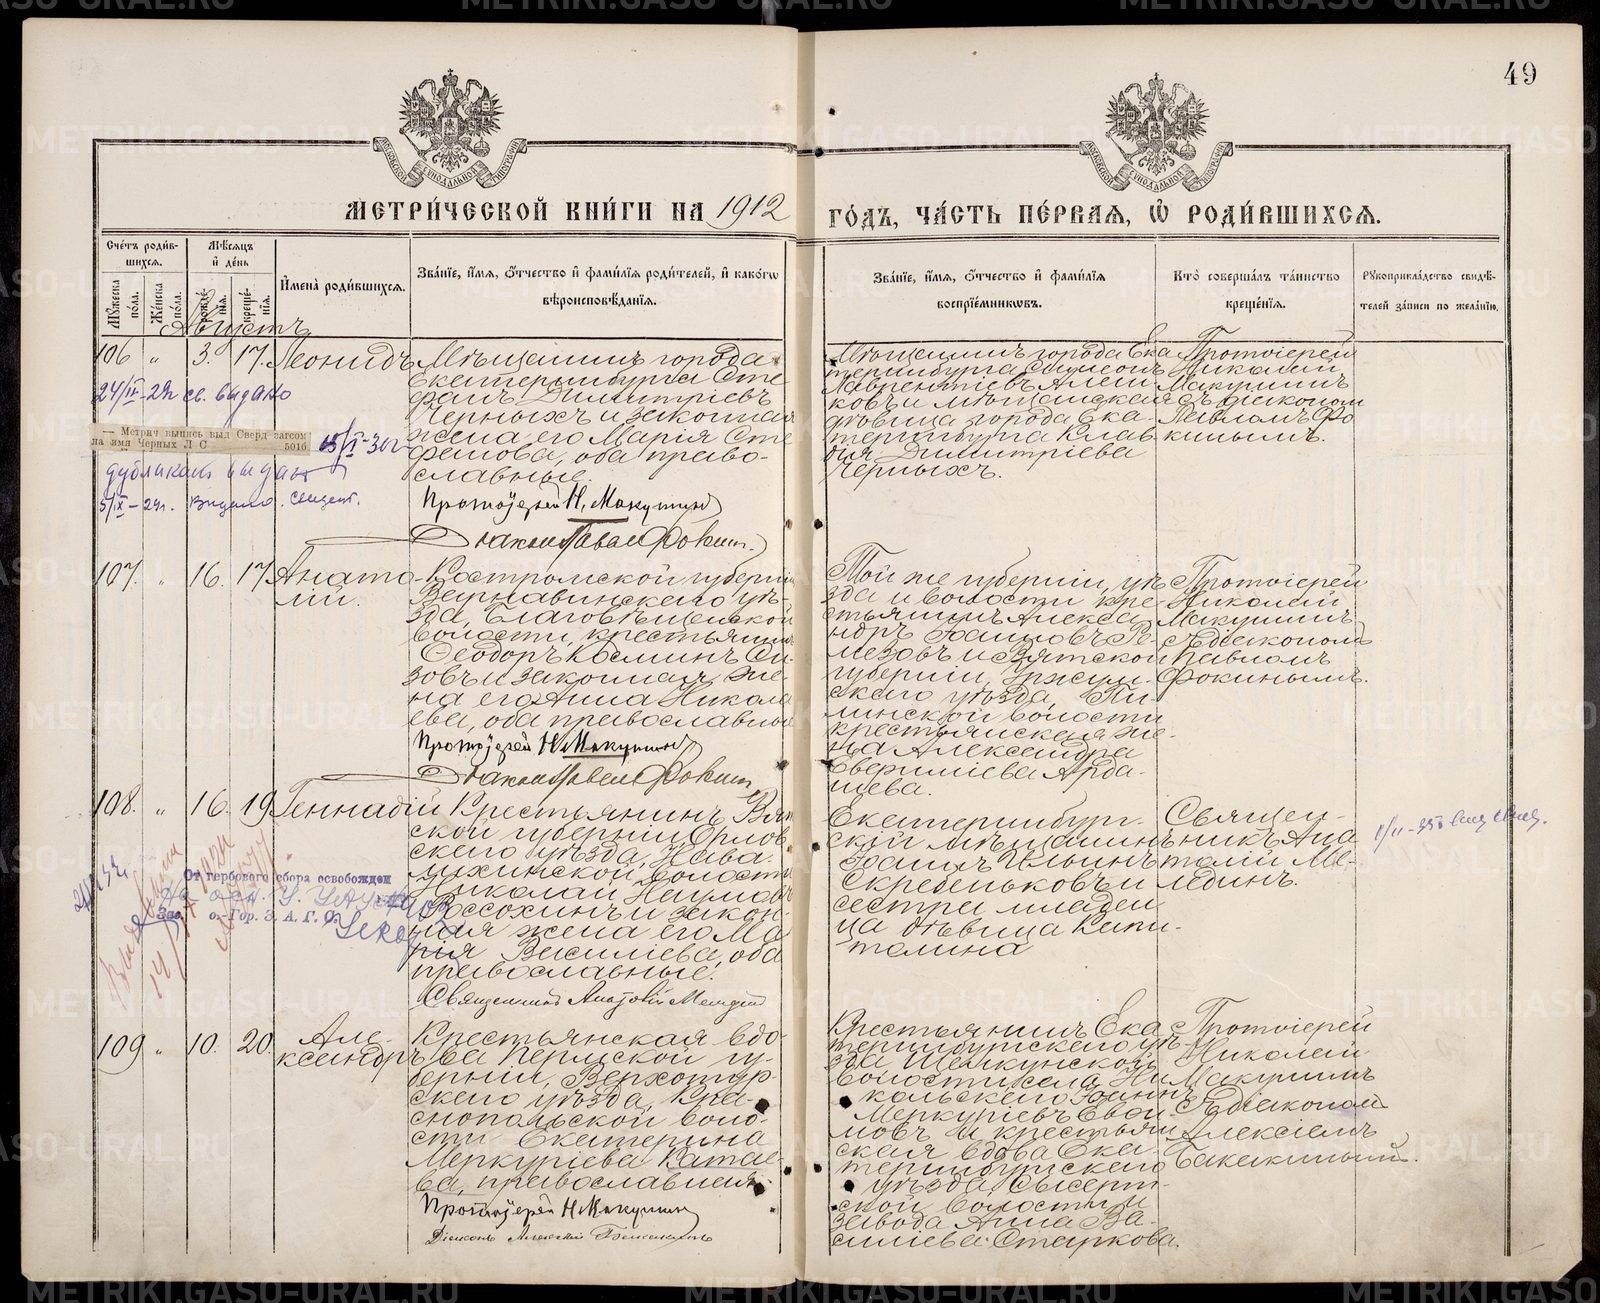 49
МЕТРИ́ЧЕСКОЙ КНИ́ГИ НА 1912 ГО́ДЪ, ЧА́СТЬ ПЕ́РВАЯ, Ѡ РОДИ́ВШИХСЯ.
Сче́тъ роди́в-
шихся.
Му́жеска по́ла.
Же́нска по́ла.
Мѣ́сяцъ
и́ де́нь
рожде́нїя.
креще́нїя.
И́мена̀ роди́вшихся.
Зва́нїе, и́мя, ѻ́тчество и́ фами́лїя роди́телей, и́ како́гѡ
вѣроисповѣ́данїя.
Зва́нїе, и́мя, ѻ́тчество и́ фами́лїя
воспрїе́мникѡвъ.
Кто̀ соверша́лъ та́инство
креще́нїя.
Рꙋкоприкла́дство свидѣ́-
телей за́писи по жела́нїю.
Августъ
106 „ 3. 17. Леонидъ
Мѣщанинъ города
Екатеринбурга Сте
фанъ Димитріевъ
Черныхъ и законная
жена его Марія Сте
фанова, оба право-
славные.
Протоіерей Н. Макушин
Диаконъ Павел Фокин.
Мѣщанинъ города Ека
теринбурга Симеонъ
Лаврентіевъ Алеи
ковъ и мѣщанская
дѣвица города Ека-
теринбурга Клав
дія Димитріева
Черныхъ.
Протоіерей
Николай
Макушинъ
съ діакономъ
Павломъ Фо
кинымъ.
24/IV-22г св. выдано
— Метрич выпись выд Сверд загсом
на имя Черных Л С 5016
15/I-30г
дубликат выдан
5/IX-24г. Выдано свидет.
107. „ 16. 17. Анато-
лій.
Костромской губерніи
Варнавинскаго уѣ-
зда, Благовѣщенской
волости, крестьянинъ
Ѳеодоръ Косминъ Си-
зовъ и законная же-
на его Анна Никола
ева, оба православные
Протоіерей Н. Макушин
Диаконъ Павел Фокин
Той же губерніи, уѣ
зда и волости кре
стьянинъ Алекса
ндръ Іоанновъ Ре-
мезовъ и Вятской
губерніи, Уржум-
скаго уѣзда, Пи-
линской волости
крестьянская же-
на Александра
Аверкіева Арда-
шева.
Протоіерей
Николай
Макушинъ
съ діакономъ
Павломъ
Фокинымъ.
108. „ 16. 19. Геннадій
Крестьянинъ Вят
ской губерніи Орлов
скаго уѣзда,
волости
Николай Наумовъ
Россохинъ и закон-
ная жена его Ма
рія Васильева, оба
православные.
Священникъ Анатолій Мелединъ
Екатеринбург-
скій мѣщанинъ
Іоаннъ Ильинъ
Скребеньковъ и
сестра младен
ца дѣвица Капи-
толина
Священ-
никъ Ана
толій Ме-
лединъ.
От гербового сбора освобожден
Зав. о. Гор. З. А. Г. С.
109 „ 10. 20. Але-
ксандръ
Крестьянская вдо-
ва Пермской гу-
берніи, Верхотур-
скаго уѣзда, Кра-
снопольской воло-
сти Екатерина
Меркуріева Катае-
ва, православная.
Протоіерей Н Макушин
Діаконъ Алексій Бакакинъ
Крестьянинъ Ека
теринбургскаго уѣ-
зда Щелкунской
волости села Ни
кольскаго Іоаннъ
Меркуріевъ Евди-
мовъ и крестьян
ская вдова Ека-
теринбургскаго
уѣзда, Сысерт-
ской волости и
завода Анна Ва-
силіева Старкова.
Протоіерей
Николай
Макушинъ
съ діакономъ
Алексіемъ
Бакакинымъ.